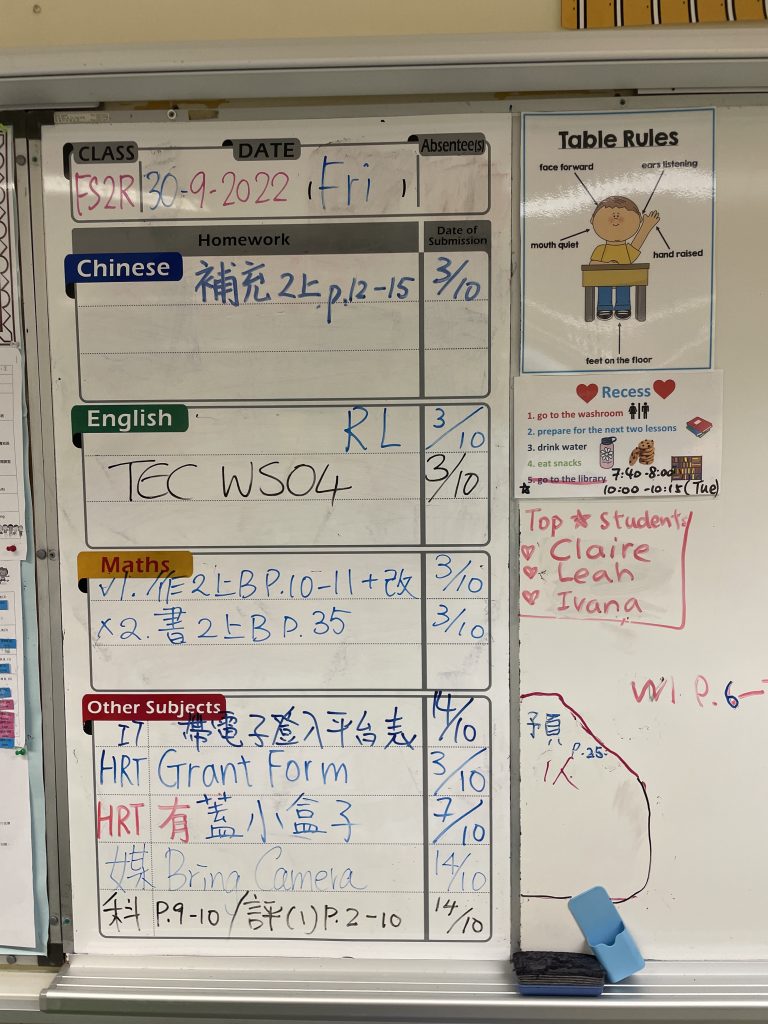 CLASS DATE Absentee(s)
FS2R 30-9-2022 (Fri)
Homework Date of Submission
Chinese
補充2上 p.12-15 3/10
English
RL 3/10
TEC WS04 3/10
Maths
✓1. 作2上B P.10-11+改 3/10
×2. 書2上B P.35 3/10
Other Subjects
IT 帶電子登入平台表 14/10
HRT Grant Form 3/10
HRT 有蓋小盒子 7/10
媒 Bring Camera 14/10
科 P.9-10 / 評(1) P.2-10 14/10
Table Rules
face forward
ears listening
mouth quiet
hand raised
feet on the floor
Recess
1. go to the washroom
2. prepare for the next two lessons
3. drink water
4. eat snacks
5. go to the library 7:40-8:00
10:00-10:15(Tue)
Top ★ Students
♡ Claire
♡ Leah
♡ Ivana
W1 P.6-
預
P.25